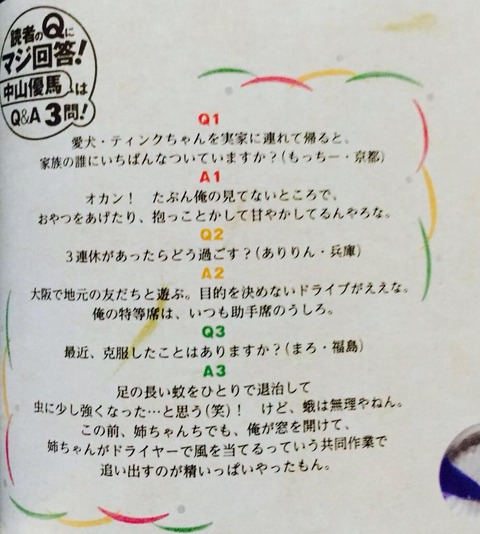 読者のQに
マジ回答!
中山優馬は
Q&A 3問!
Q1
愛犬・ティンクちゃんを実家に連れて帰ると、
家族の誰にいちばんなついていますか?(もっちー・京都)
A1
オカン! たぶん俺の見てないところで、
おやつをあげたり、抱っことかして甘やかしてるんやろな。
Q2
3連休があったらどう過ごす?(ありりん・兵庫)
A2
大阪で地元の友だちと遊ぶ。目的を決めないドライブがええな。
俺の特等席は、いつも助手席のうしろ。
Q3
最近、克服したことはありますか?(まろ・福島)
A3
足の長い蚊をひとりで退治して
虫に少し強くなった…と思う(笑)! けど、蛾は無理やねん。
この前、姉ちゃんちでも、俺が窓を開けて、
姉ちゃんがドライヤーで風を当てるっていう共同作業で
追い出すのが精いっぱいやったもん。